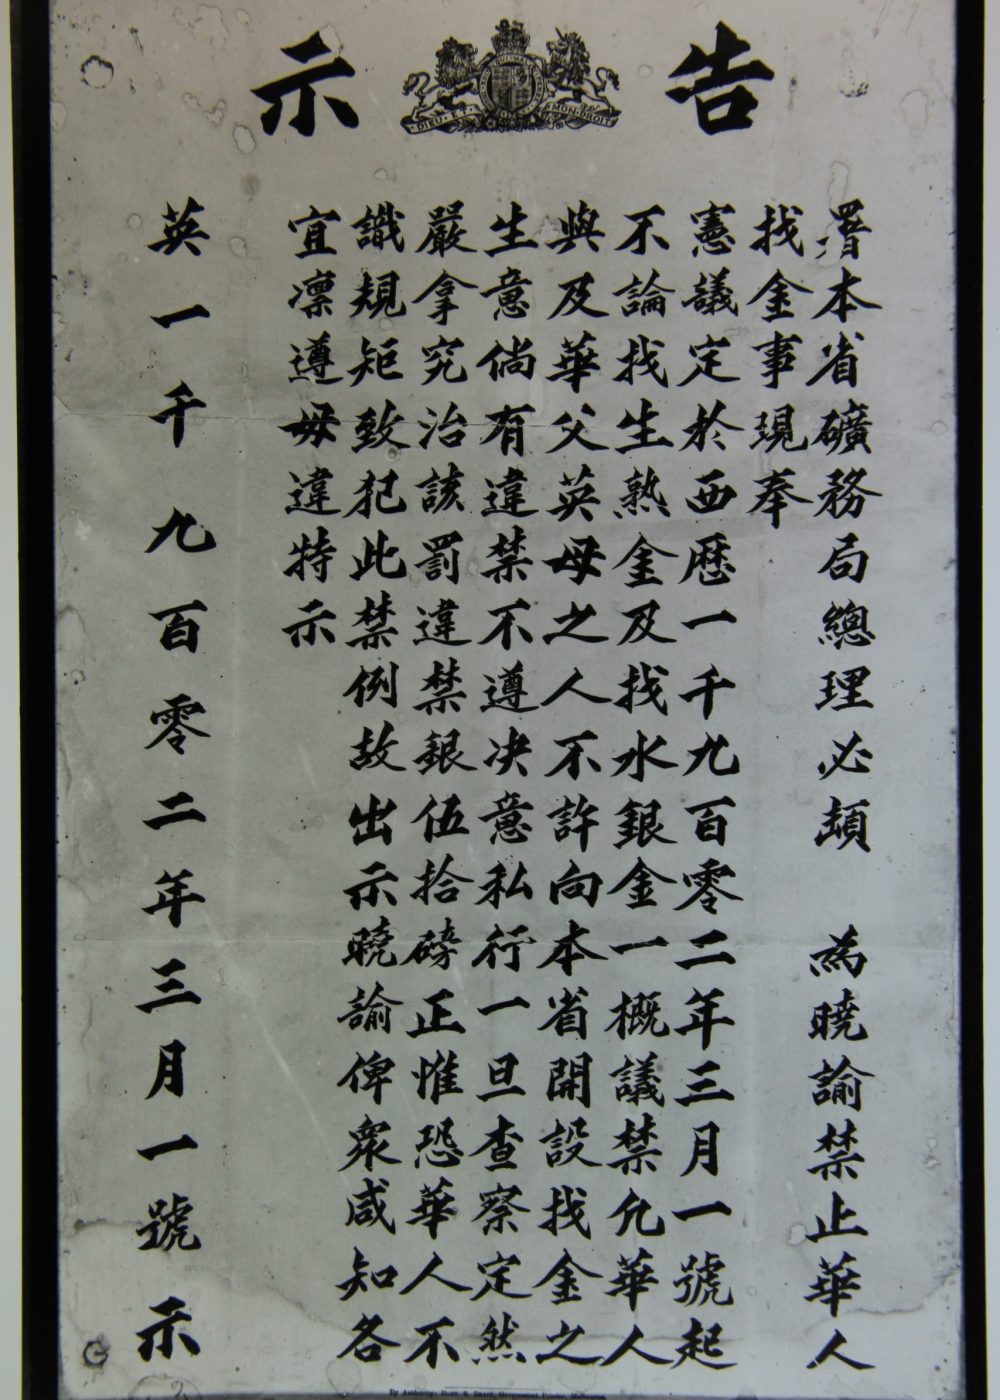 告示
DIEU ET MON DROIT
署本省礦務局總理必頡 為曉諭禁止華人
找金事現奉
憲議定於西曆一千九百零二年三月一號起
不論找生熟金及找水銀金一概議禁允華人
與及華父英母之人不許向本省開設找金之
生意倘有違禁不遵决意私行一旦查察定然
嚴拿究治該罰違禁銀伍拾磅正惟恐華人不
識規矩致犯此禁例故出示曉諭俾衆咸知各
宜凛遵毋違特示
英一千九百零二年三月一號示
By Authority: Robt. S. Brain, Government Printer, Melbourne.